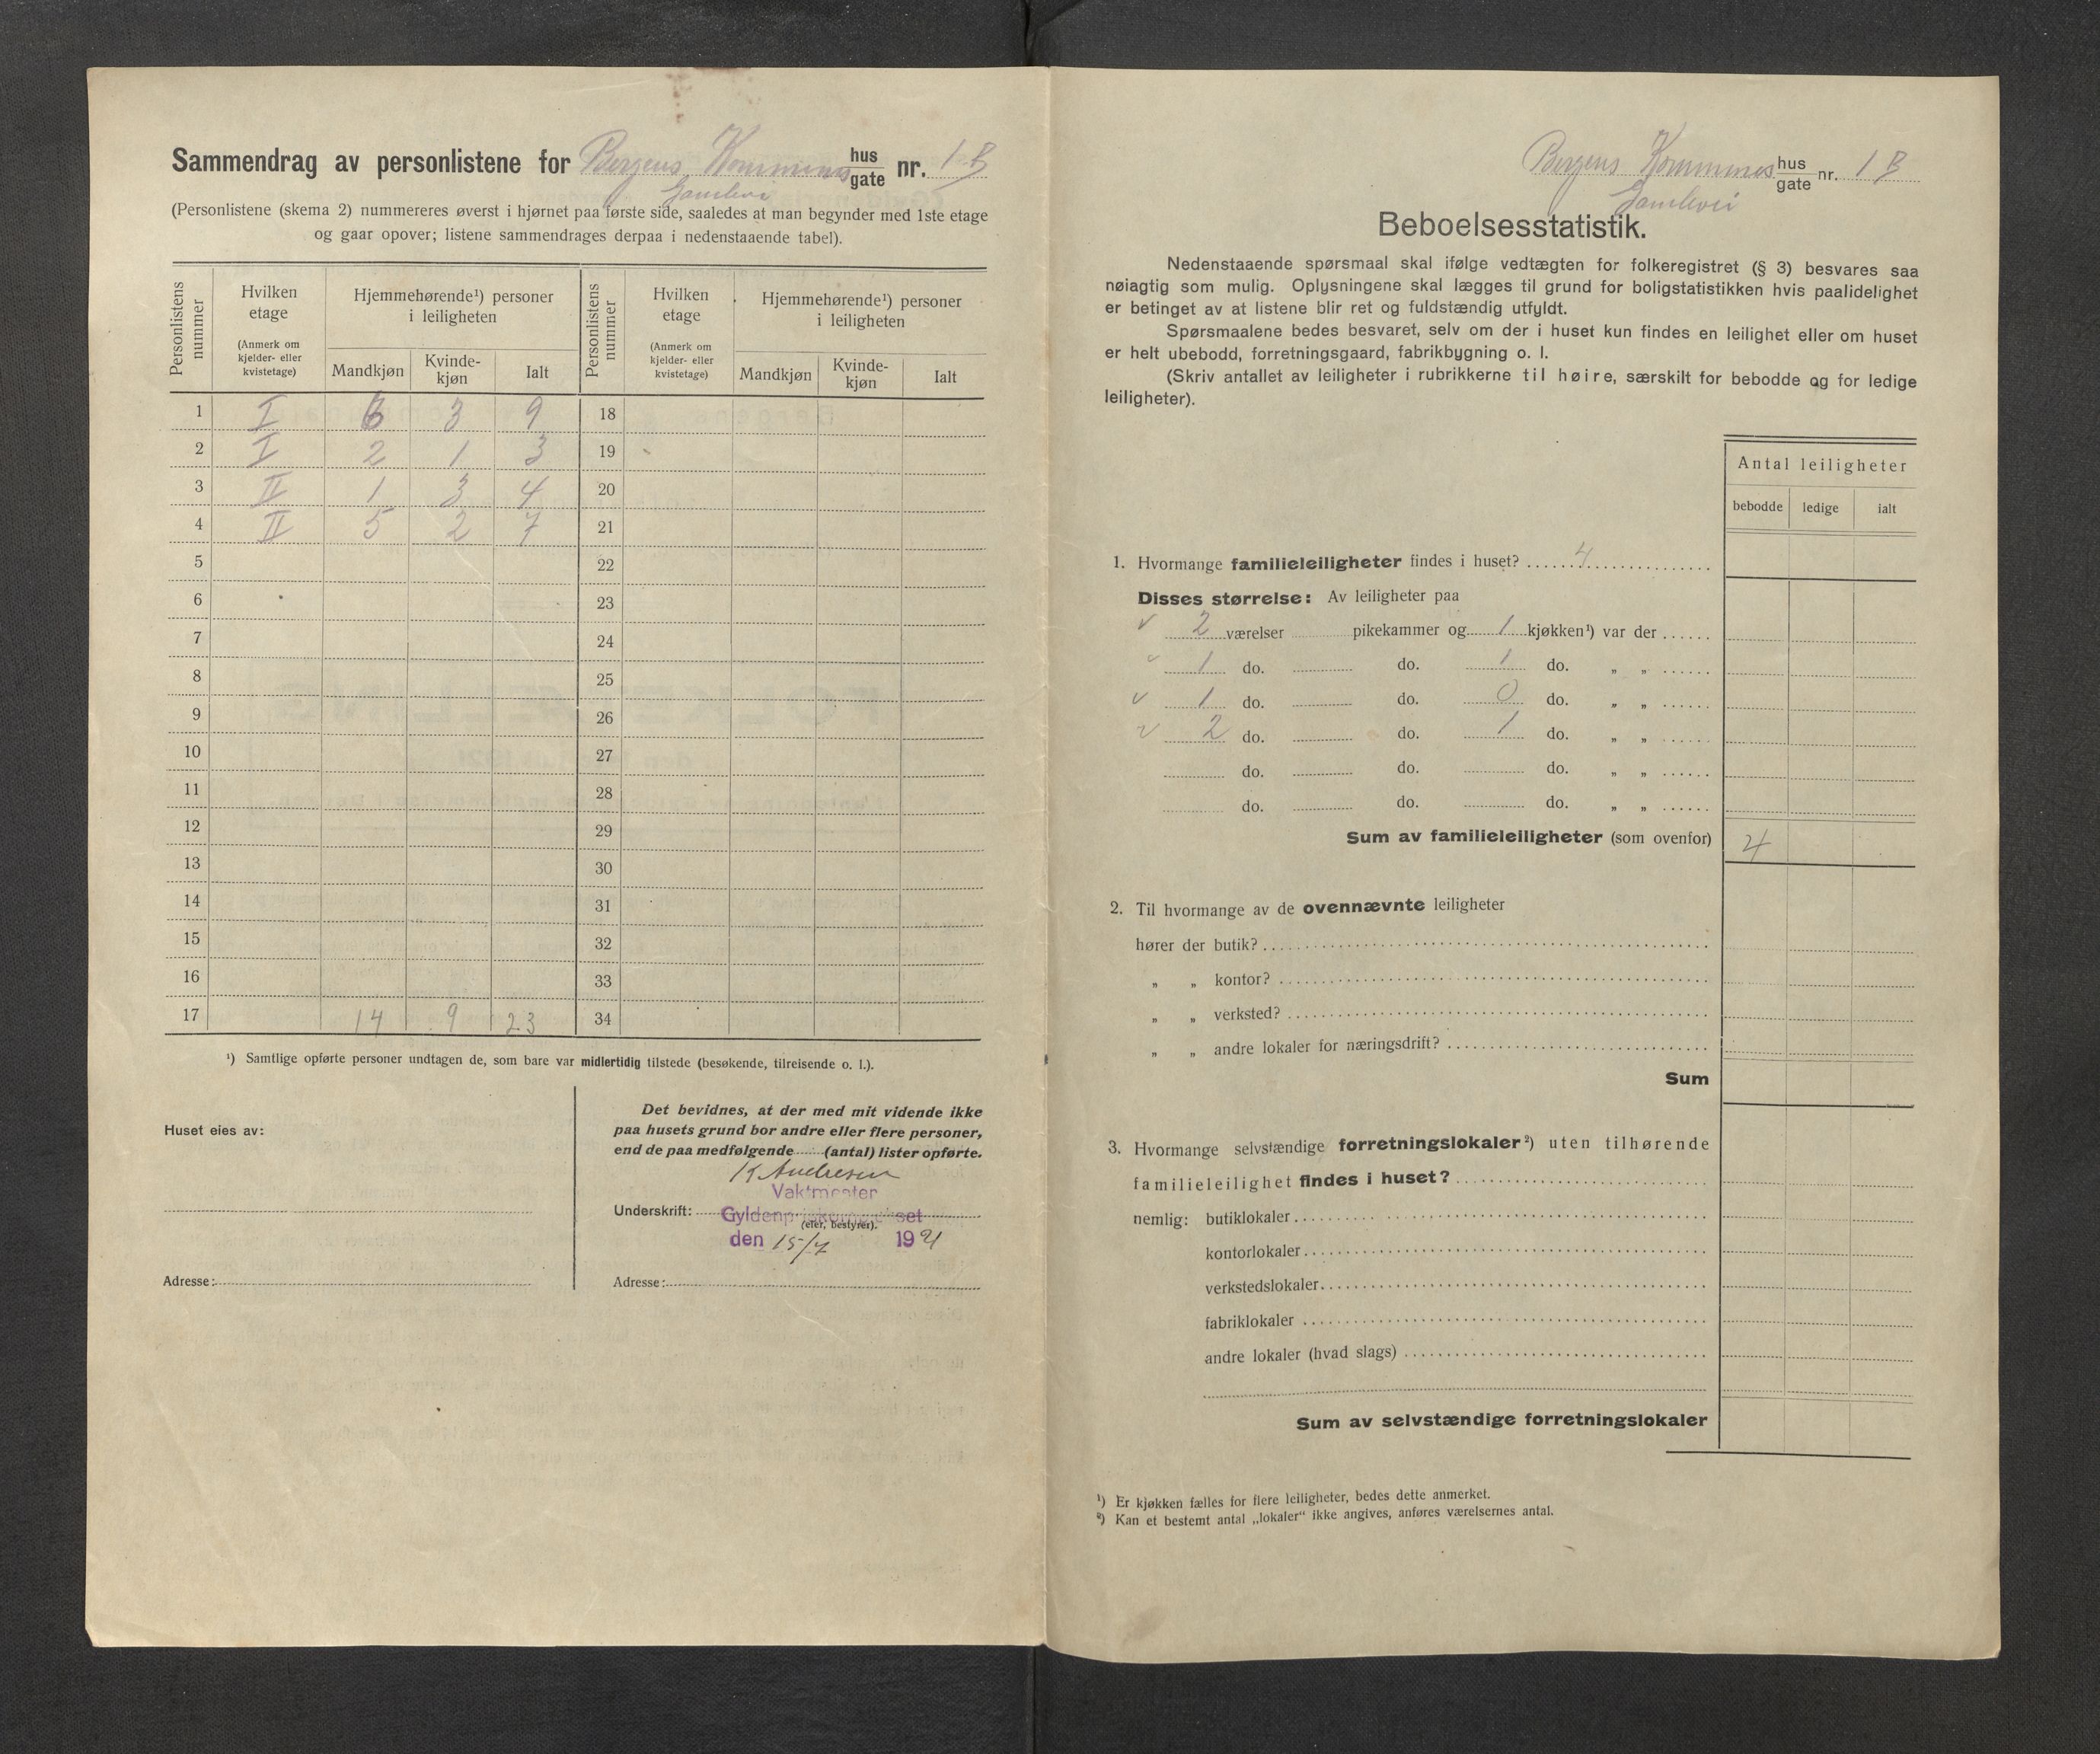 Sammendrag av personlistene for Bergens Kommunes hus gate nr. 1 B
Gamlevei
(Personlistene (skema 2) nummereres øverst i hjørnet paa første side, saaledes at man begynder med 1ste etage
og gaar opover; listene sammendrages derpaa i nedenstaaende tabel).
Personlistens nummer
Hvilken etage
(Anmerk om kjelder- eller kvistetage)
Hjemmehørende¹) personer i leiligheten
Mandkjøn
Kvinde-kjøn
Ialt
Personlistens nummer
Hvilken etage
(Anmerk om kjelder- eller kvistetage)
Hjemmehørende¹) personer i leiligheten
Mandkjøn
Kvinde-kjøn
Ialt
1 I 6 3 9 18
2 I 2 1 3 19
3 II 1 3 4 20
4 II 5 2 7 21
5 22
6 23
7 24
8 25
9 26
10 27
11 28
12 29
13 30
14 31
15 32
16 33
17 14 9 23 34
¹) Samtlige opførte personer undtagen de, som bare var midlertidig tilstede (besøkende, tilreisende o. l.).
Huset eies av:
Adresse:
Det bevidnes, at der med mit vidende ikke
paa husets grund bor andre eller flere personer,
end de paa medfølgende (antal) lister opførte.
K Andresen
Vaktmester
Underskrift:
(eier, bestyrer).
den 15/7 1921
Adresse:
Bergens Kommunes hus gate nr. 1 B
Gamlevei
Beboelsesstatistik.
Nedenstaaende spørsmaal skal ifølge vedtægten for folkeregistret (§ 3) besvares saa
nøiagtig som mulig. Oplysningene skal lægges til grund for boligstatistikken hvis paalidelighet
er betinget av at listene blir ret og fuldstændig utfyldt.
Spørsmaalene bedes besvaret, selv om der i huset kun findes en leilighet eller om huset
er helt ubebodd, forretningsgaard, fabrikbygning o. l.
(Skriv antallet av leiligheter i rubrikkerne til høire, særskilt for bebodde og for ledige
leiligheter).
Antal leiligheter
bebodde ledige ialt
1. Hvormange familieleiligheter findes i huset? 4
Disses størrelse: Av leiligheter paa
✓ 2 værelser pikekammer og 1 kjøkken¹) var der
✓ 1 do. do. 1 do. „ „
✓ 1 do. do. 0 do. „ „
✓ 2 do. do. 1 do. „ „
do. do. do. „ „
do. do. do. „ „
Sum av familieleiligheter (som ovenfor) 4
2. Til hvormange av de ovennævnte leiligheter
hører der butik?
„ „ kontor?
„ „ verksted?
„ „ andre lokaler for næringsdrift?
Sum
3. Hvormange selvstændige forretningslokaler²) uten tilhørende
familieleilighet findes i huset?
nemlig: butiklokaler
kontorlokaler
verkstedslokaler
fabriklokaler
andre lokaler (hvad slags)
Sum av selvstændige forretningslokaler
¹) Er kjøkken fælles for flere leiligheter, bedes dette anmerket.
²) Kan et bestemt antal „lokaler“ ikke angives, anføres værelsernes antal.